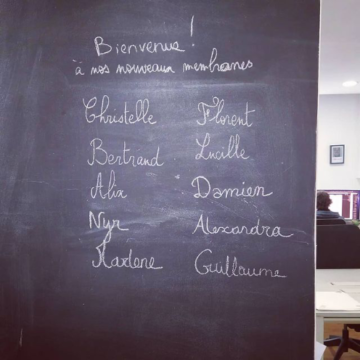 Bienvenue !
à nos nouveaux membranes
Christelle Florent
Bertrand Lucille
Alix Damien
Nyr Alexandra
Marlene Guillaume